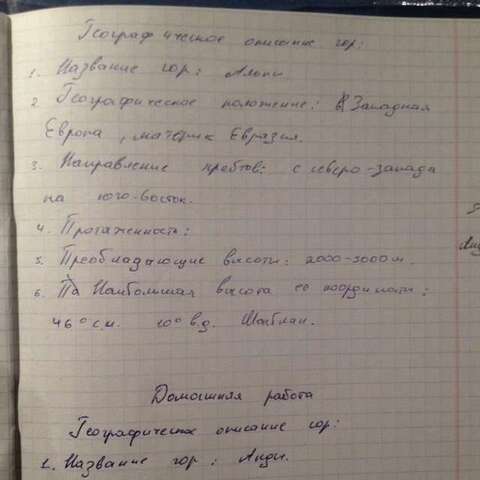 Географическое описание гор:
1. Название гор: Альпы
2. Географическое положение: Западная
Европа, материк Евразия.
3. Направление хребтов: с северо-запада
на юго-восток.
4. Протяженность:
5. Преобладающие высоты: 2000-3000 м.
6. Наибольшая высота её координаты:
46° с.ш. 10° в.д. Монблан.
Домашняя работа
Географическое описание гор:
1. Название гор: Анды.